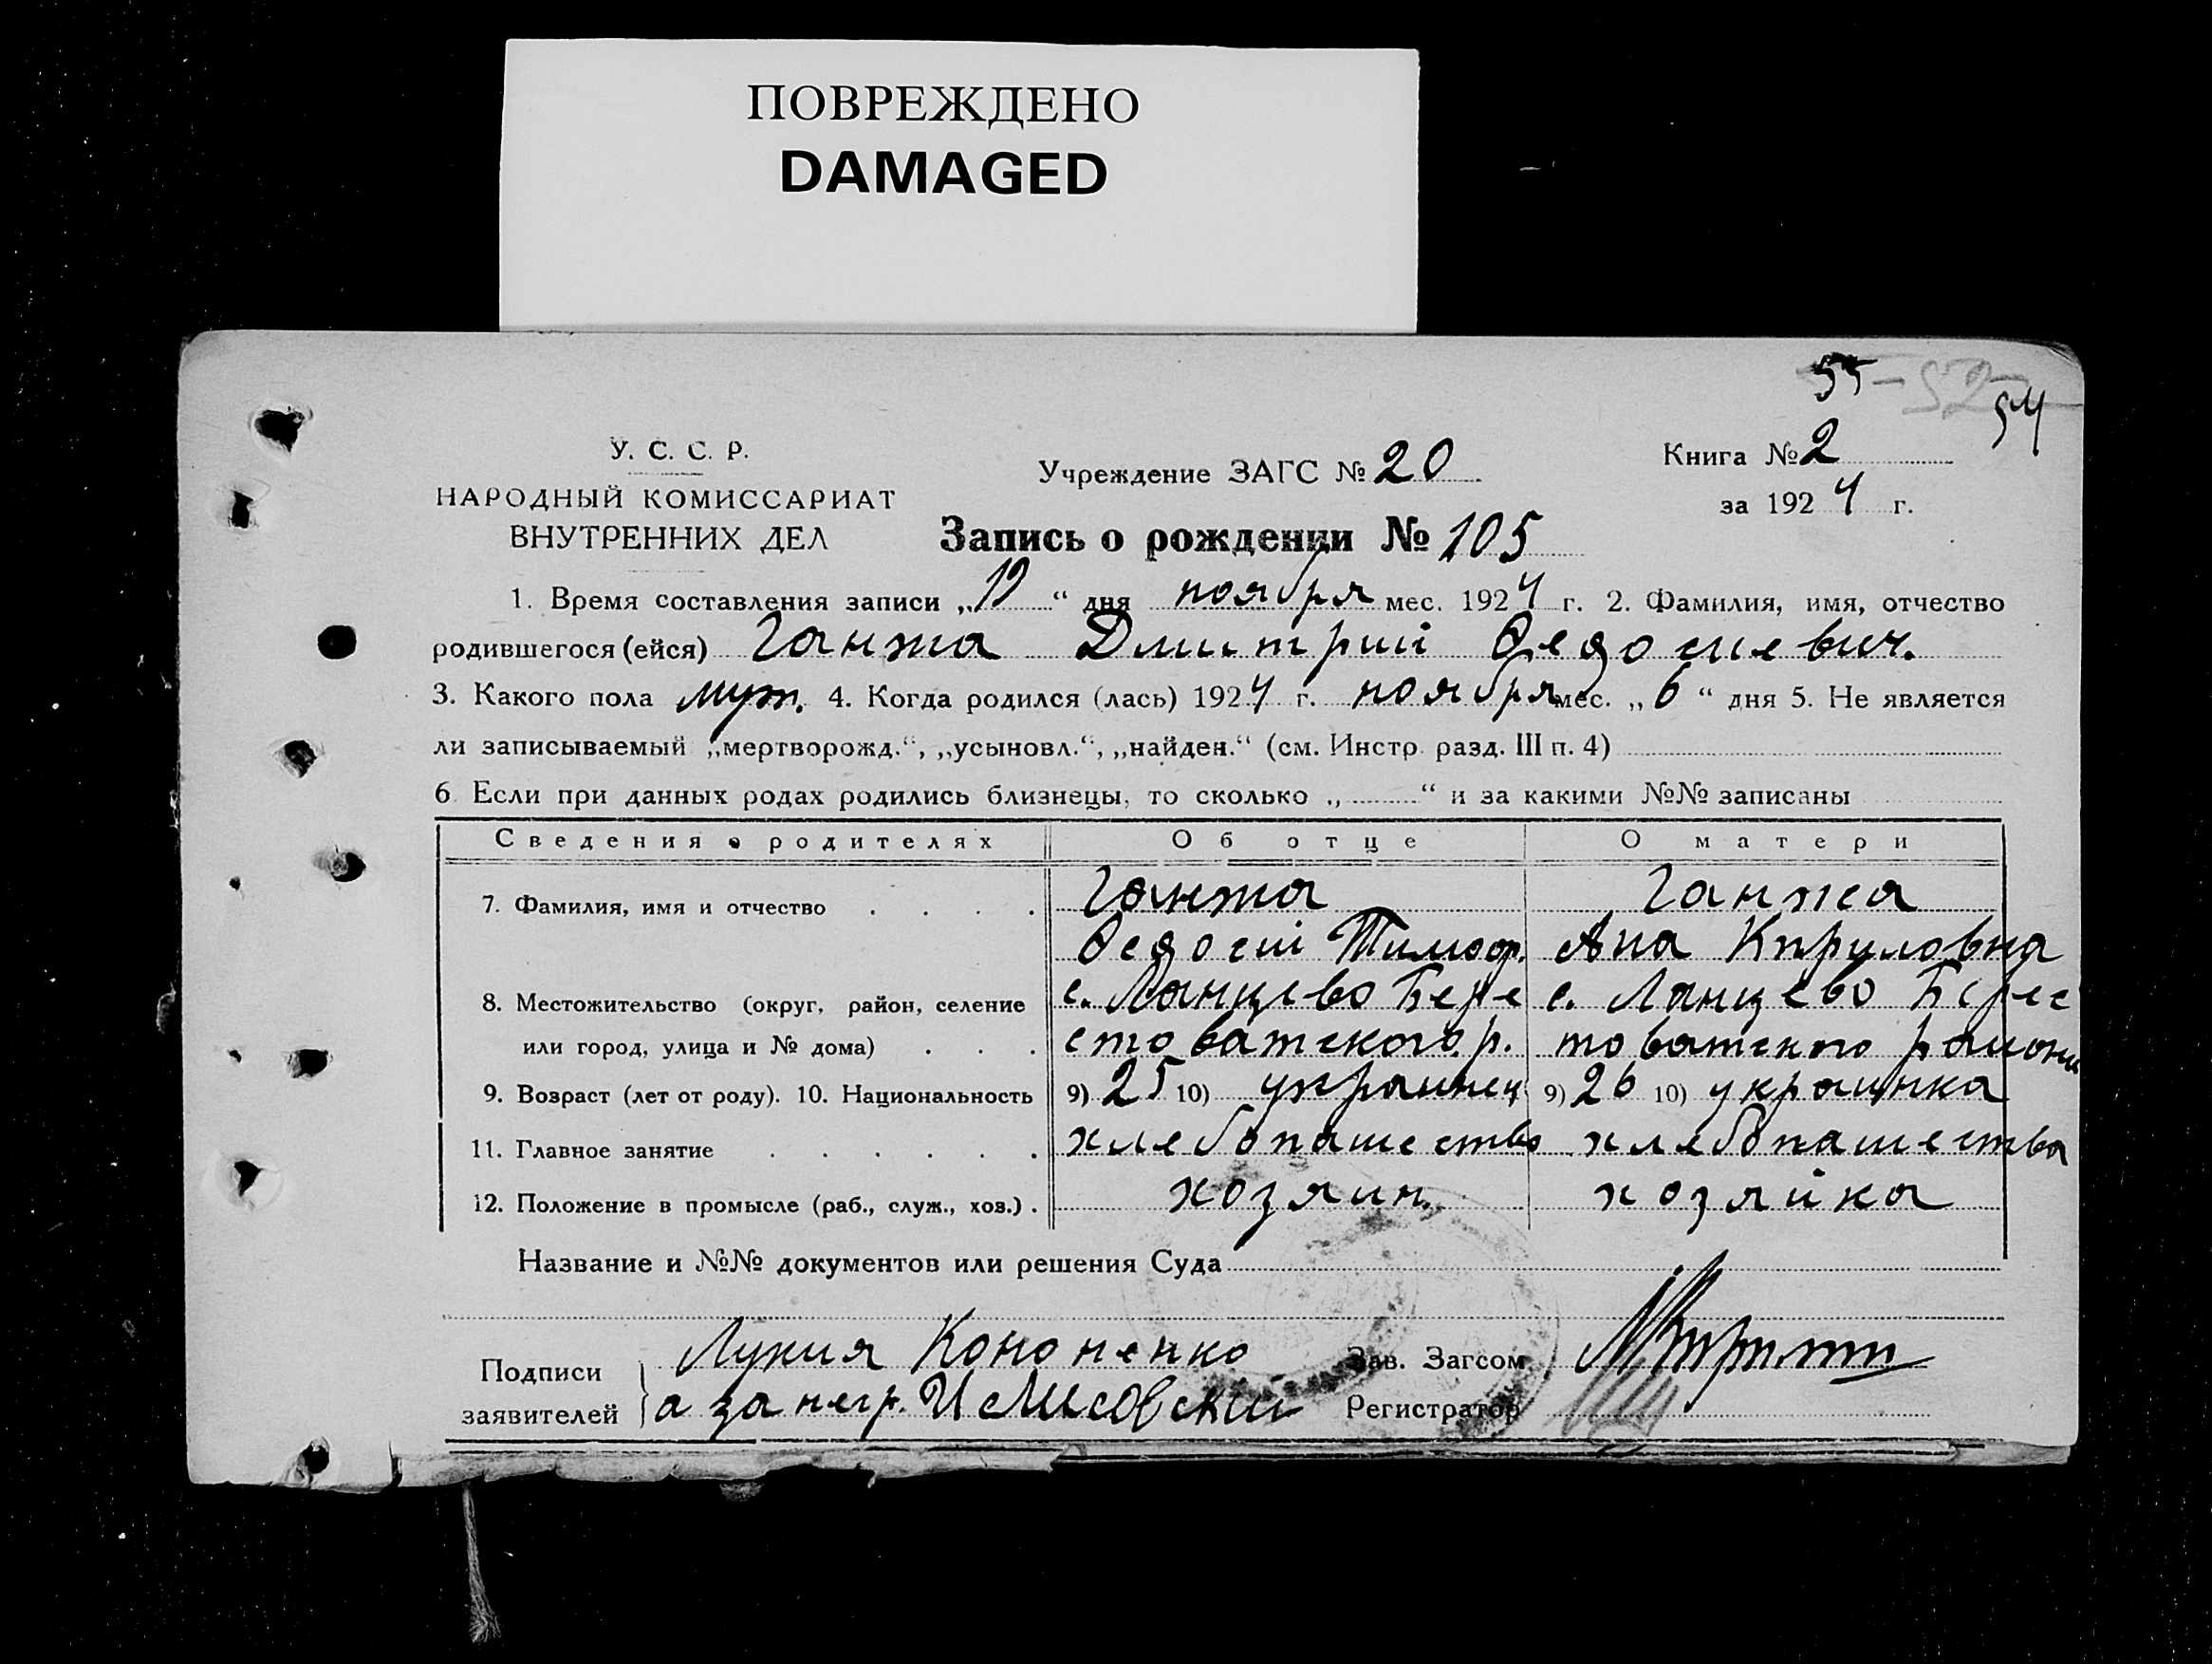 ПОВРЕЖДЕНО
DAMAGED
55 - 52
54
У. С. С. Р.
НАРОДНЫЙ КОМИССАРИАТ
ВНУТРЕННИХ ДЕЛ
Учреждение ЗАГС № 20
Книга № 2
за 1924 г.
Запись о рождении № 105
1. Время составления записи „12“ дня ноября мес. 1924 г. 2. Фамилия, имя, отчество
родившегося (ейся) Ганжа Дмитрий Федосиевич.
3. Какого пола муж. 4. Когда родился (лась) 1924 г. ноября мес. „6“ дня 5. Не является
ли записываемый „мертворожд.“, „усыновл.“, „найден.“ (см. Инстр. разд. III п. 4)
6 Если при данных родах родились близнецы, то сколько „ “ и за какими №№ записаны
Сведения о родителях Об отце О матери
7. Фамилия, имя и отчество . . . . Ганжа Ганжа
Федосий Тимоф. Ана Кириловна
8. Местожительство (округ, район, селение с. Ланцево Бере с. Ланцево Берес
или город, улица и № дома) . . . стоватского р. товатского района
9. Возраст (лет от роду). 10. Национальность 9) 25 10) украинец 9) 26 10) украинка
11. Главное занятие . . . . . . хлебопашество хлебопашества
12. Положение в промысле (раб., служ., хоз.) . хозяин. хозяйка
Название и №№ документов или решения Суда
Подписи заявителей
Лукия Кононенко
а за негр.
Зав. Загсом
Регистратор